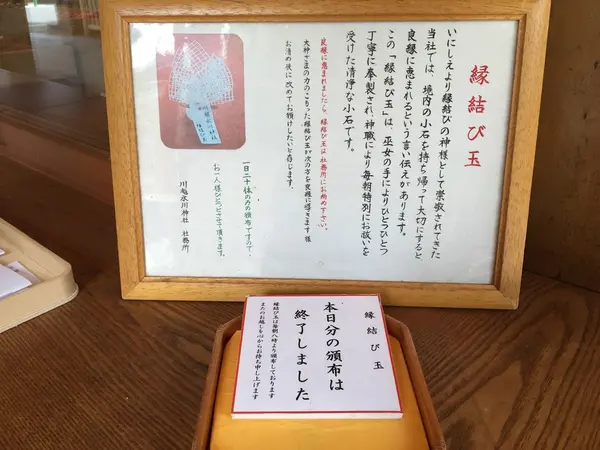 縁結び玉
いにしえより縁結びの神様として崇敬されてきた
当社では、境内の小石を持ち帰って大切にすると、
良縁に恵まれるという言い伝えがあります。
この「縁結び玉」は、巫女の手によりひとつひとつ
丁寧に奉製され、神職により毎朝特別にお祓いを
受けた清浄な小石です。
良縁に恵まれましたら、縁結び玉は社務所にお納め下さい。
大神さまの力のこもった縁結び玉が次の方を良縁に導きます様
お清め後に改めてお頒けしたいと存じます。
一日二十体のみの頒布ですので、
お一人様ひとつとさせて頂きます。
川越氷川神社 社務所
縁結び玉
本日分の頒布は
終了しました
縁結び玉は毎朝八時より頒布しております
またのお越しを心からお待ち申し上げます